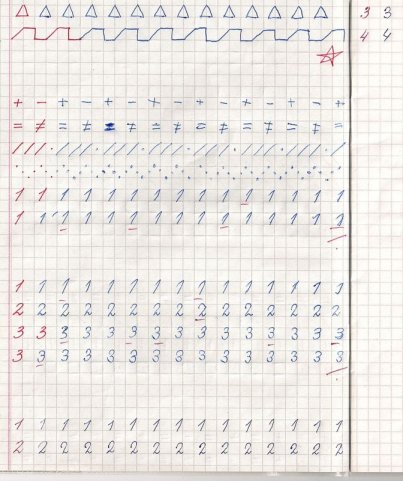 + - + - + - + - + - + - + - +
= ≠ = ≠ = ≠ = ≠ = ≠ = ≠ = ≠ =
1 1 1 1 1 1 1 1 1 1 1 1 1 1 1
1 1 1 1 1 1 1 1 1 1 1 1 1 1 1
1 1 1 1 1 1 1 1 1 1 1 1 1 1 1
2 2 2 2 2 2 2 2 2 2 2 2 2 2 2
3 3 3 3 3 3 3 3 3 3 3 3 3 3 3
3 3 3 3 3 3 3 3 3 3 3 3 3 3 3
1 1 1 1 1 1 1 1 1 1 1 1 1 1 1
2 2 2 2 2 2 2 2 2 2 2 2 2 2 2
3 3
4 4